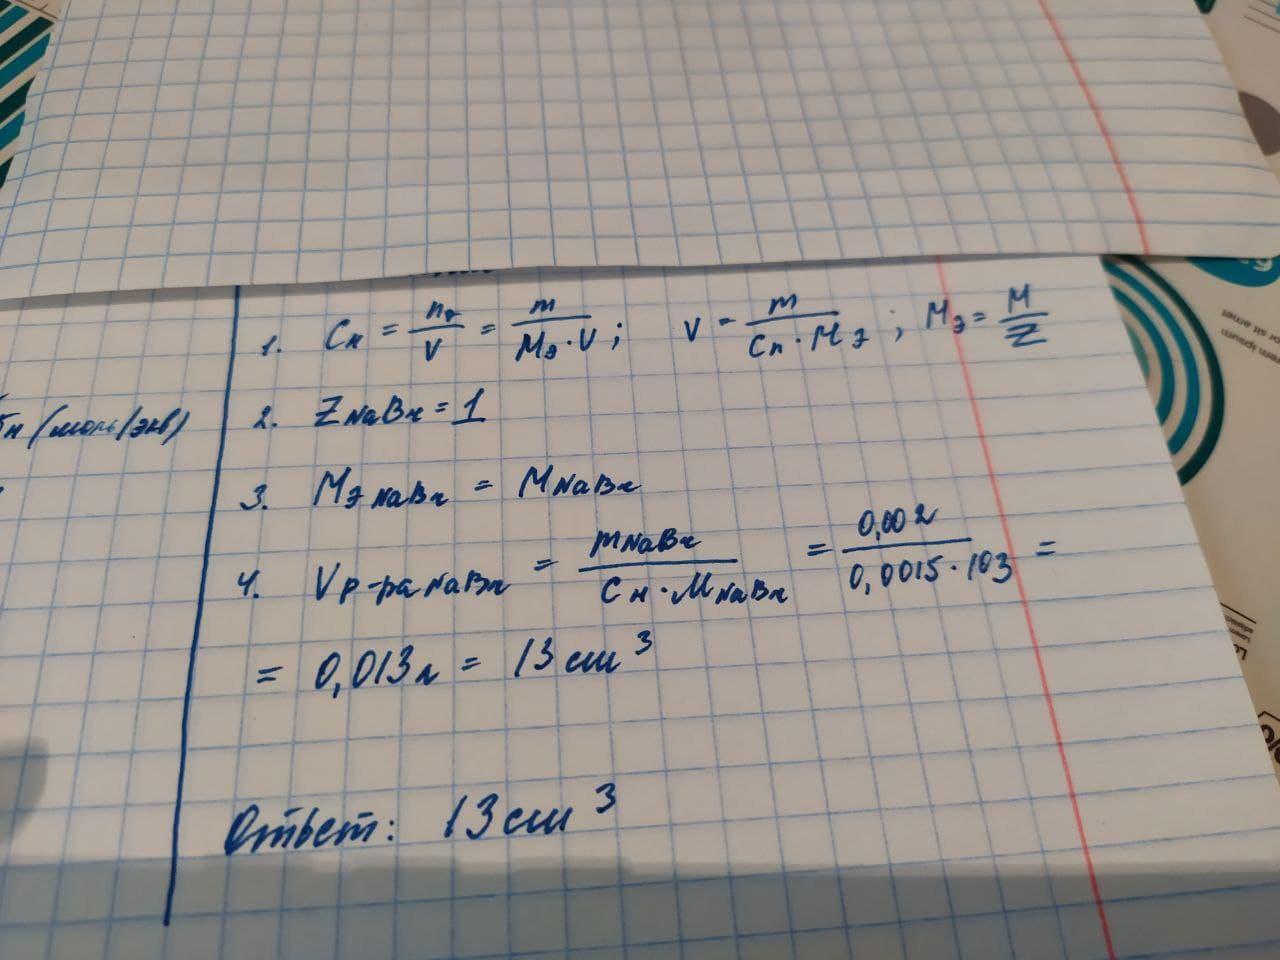 1. Cн = nэ/V = m/(Mэ·V); V = m/(Cн·Mэ); Mэ = M/Z
н (моль/экв)
2. Z NaBr = 1
3. Mэ NaBr = M NaBr
4. V р-ра NaBr = m NaBr/(Cн·M NaBr) = 0,002/(0,0015·103) =
= 0,013л = 13 см³
Ответ: 13 см³